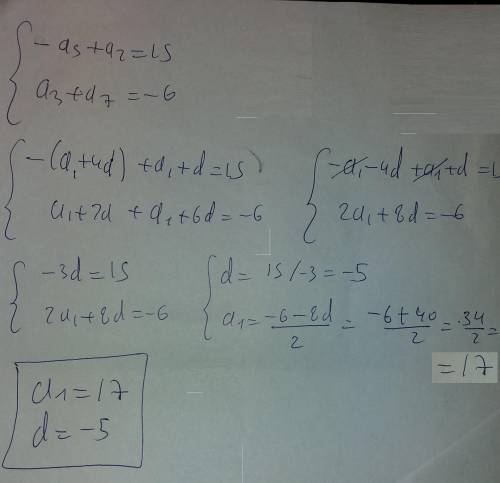 - a5 + a2 = 15
a3 + a7 = -6
-(a1+4d) + a1 + d = 15
a1+2d + a1+6d = -6
-a1-4d+a1+d =
2a1+8d = -6
-3d = 15
2a1+8d = -6
d = 15/-3 = -5
a1 = -6-8d/2 = -6+40/2 = 34/2 =
= 17
a1 = 17
d = -5